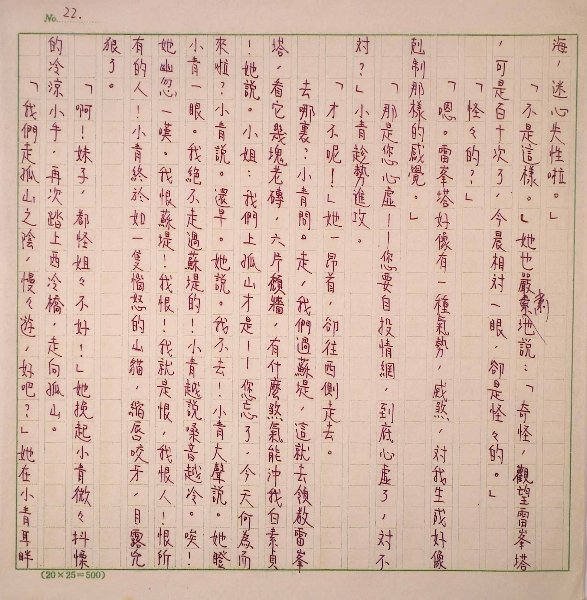 No. 22.
海，迷心失性啦。」
「不是這樣。」她也嚴肅地說：「奇怪，觀望雷峯塔
，可是百十次了，今晨相對一眼，卻是怪々的。」
「怪々的？」
「嗯。雷峯塔好像有一種氣勢，威煞，對我生成好像
剋制那樣的感覺。」
「那是您心虛——您要自投情網，到底心虛了，對不
對？」小青趁勢進攻。
「才不呢！」她一昂首，卻往西側走去。
去哪裏？小青問。走，我們過蘇堤，這就去領教雷峯
塔，看它幾塊老磚，六片頹牆，有什麼煞氣能沖我白素貞
！她說。小姐：我們上孤山才是——您忘了，今天何為而
來啦？小青說。還早。她說。我不去！小青大聲說。她瞪
小青一眼。我絕不走過蘇堤的！小青越說嗓音越冷。唉！
她幽忽一嘆。我恨蘇堤！我恨！我就是恨，我恨人！恨所
有的人！小青終於如一隻惱怒的山貓，縮唇咬牙，目露兇
狠了。
「啊！妹子，都怪姐々不好！」她挽起小青微々抖慄
的冷涼小手，再次踏上西冷橋，走向孤山。
「我們走孤山之陰，慢々遊，好吧？」她在小青耳畔
(20×25=500)